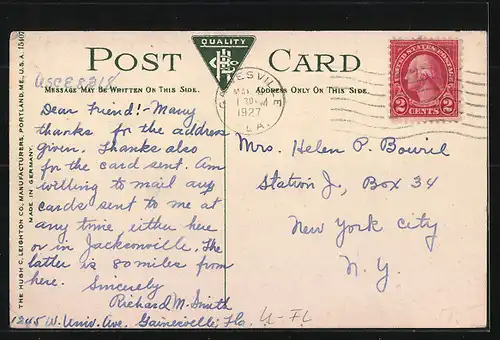 QUALITY
POST CARD
USCE8318
MESSAGE MAY BE WRITTEN ON THIS SIDE.
ADDRESS ONLY ON THIS SIDE.
THE HUGH C. LEIGHTON CO., MANUFACTURERS, PORTLAND, ME., U.S.A.
MADE IN GERMANY.
Dear Friend:- Many
thanks for the address
given. Thanks also
for the card sent. Am
willing to mail any
cards sent to me at
any time, either here
or in Jacksonville. The
latter is 80 miles from
here. Sincerely
Richard M. Smith
1245 W. Univ. Ave. Gainesville, Fla.
ESVILLE
1927
LA.
UNITED STATES POSTAGE
2 CENTS 2
Mrs. Helen P. Bowril
Station J., Box 34
New York City
N.Y.
U-FL